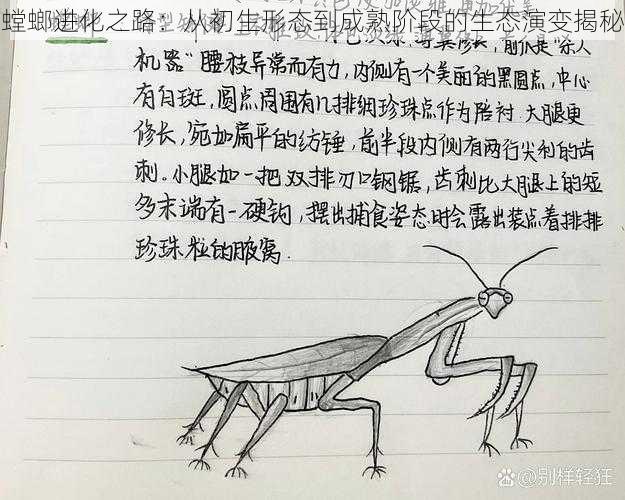 螳螂进化之路：从初生形态到成熟阶段的生态演变揭秘
机器"腰肢异常而有力，内侧有一个美丽的黑圆点，中心
有白斑，圆点周围有几排细珍珠点作为陪衬.大腿更
修长，宛如扁平的纺锤，前半段内侧有两行尖利的齿
刺。小腿如一把双排刃口钢锯，齿刺比大腿上的短
多末端有一硬钩，摆出捕食姿态时会露出装点着排排
珍珠粒的腋窝.
@别样轻狂